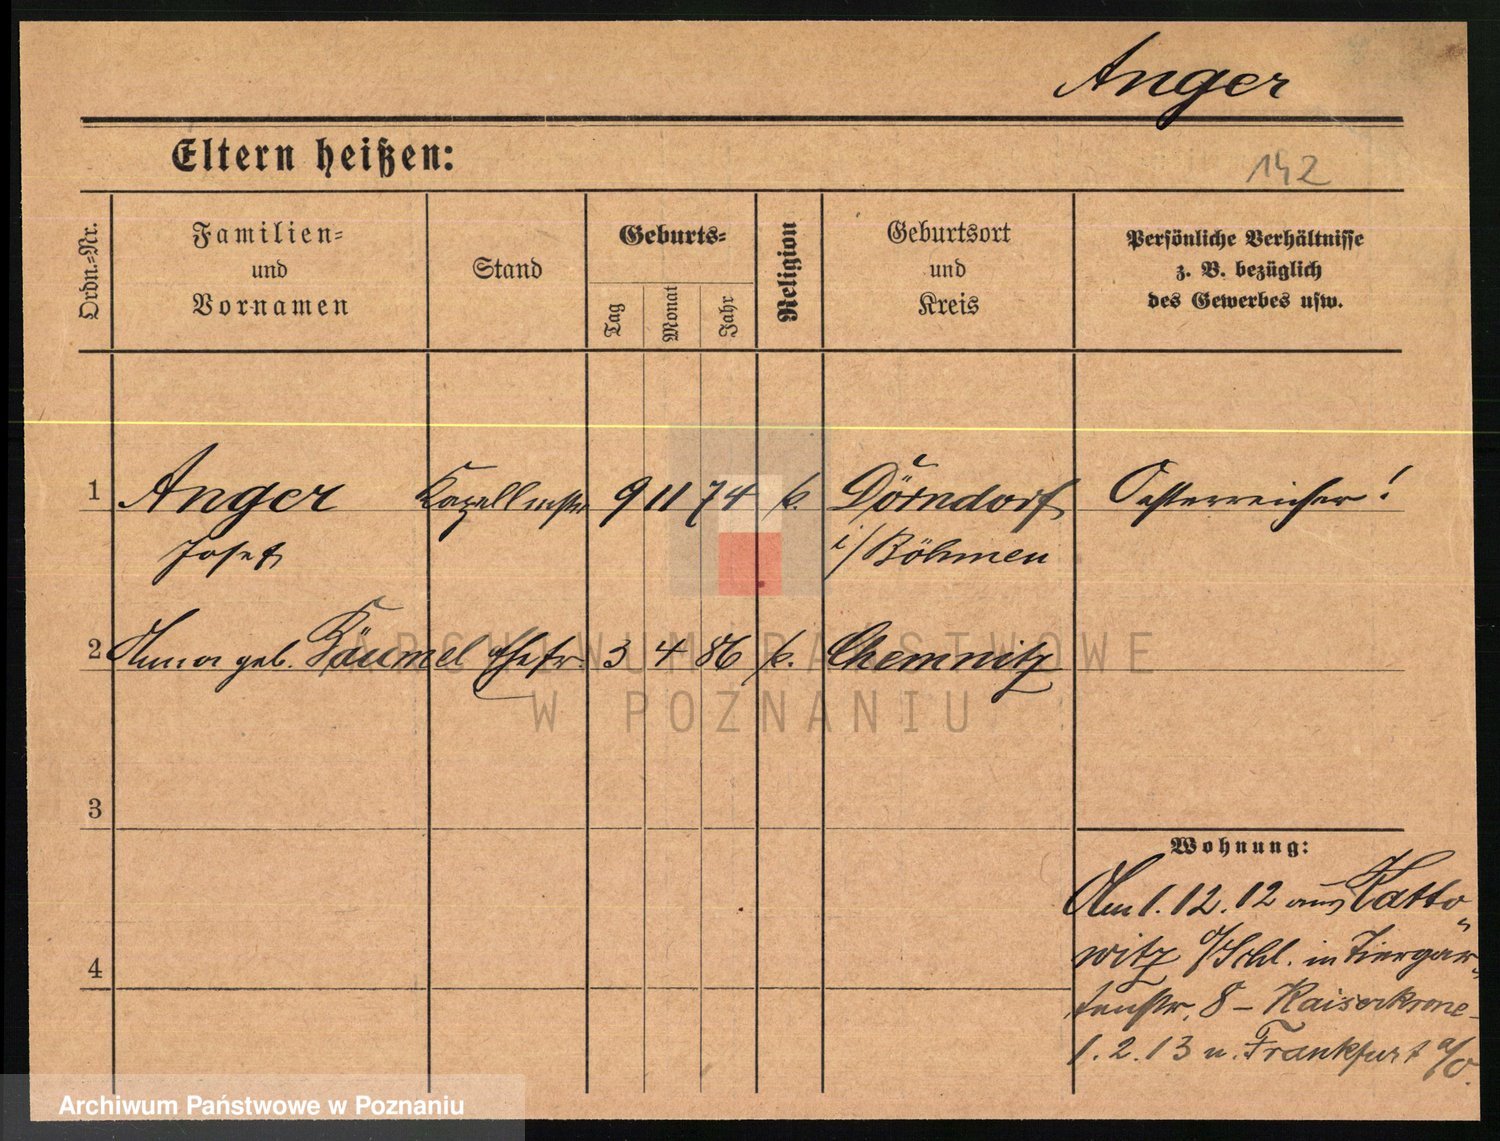 Anger
Eltern heißen:
142
Ordn.-Nr.
Familien-
und
Vornamen
Stand
Geburts-
Tag
Monat
Jahr
Religion
Geburtsort
und
Kreis
Persönliche Verhältnisse
z. B. bezüglich
des Gewerbes usw.
1 Anger Kapellmstr. 9 11 74 k. Dörndorf Oesterreicher!
Josef i/Böhmen
2 Anna geb. Bäumel Ehefr. 3 4 86 k. Chemnitz
3
4
Wohnung:
Am 1.12.12 aus Katto-
witz O/Schl. in Tiergar-
tenstr. 8 – Kaiserkrone –
1.2.13 n. Frankfurt a/O.
ARCHIWUM PAŃSTWOWE
W POZNANIU
Archiwum Państwowe w Poznaniu